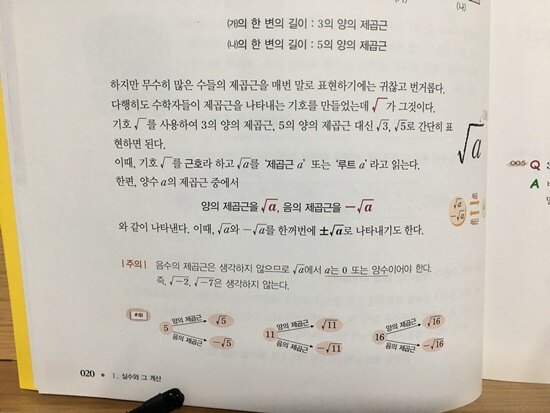 (나)
㈎의 한 변의 길이 : 3의 양의 제곱근
㈏의 한 변의 길이 : 5의 양의 제곱근
하지만 무수히 많은 수들의 제곱근을 매번 말로 표현하기에는 귀찮고 번거롭다.
다행히도 수학자들이 제곱근을 나타내는 기호를 만들었는데 √ 가 그것이다.
기호 √ 를 사용하여 3의 양의 제곱근, 5의 양의 제곱근 대신 √3, √5로 간단히 표
현하면 된다.
이때, 기호 √ 를 근호라 하고 √a를 '제곱근 a' 또는 '루트 a'라고 읽는다.
한편, 양수 a의 제곱근 중에서
양의 제곱근을 √a, 음의 제곱근을 -√a
와 같이 나타낸다. 이때, √a와 -√a를 한꺼번에 ±√a로 나타내기도 한다.
|주의| 음수의 제곱근은 생각하지 않으므로 √a에서 a는 0 또는 양수이어야 한다.
즉, √-2, √-7은 생각하지 않는다.
5 양의 제곱근 √5
음의 제곱근 -√5
11 양의 제곱근 √11
음의 제곱근 -√11
16 양의 제곱근 √16
음의 제곱근 -√16
020 • 1. 실수와 그 계산
√a
√a
-√a
005 Q
A